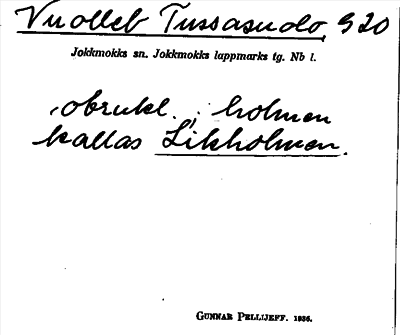 Vuolleb Tussasuolo, S 20
Jokkmokks sn. Jokkmokks lappmarks tg. Nb l.
obrukl.; holmen
kallas Likholmen.
GUNNAR PELLIJEFF. 1936.